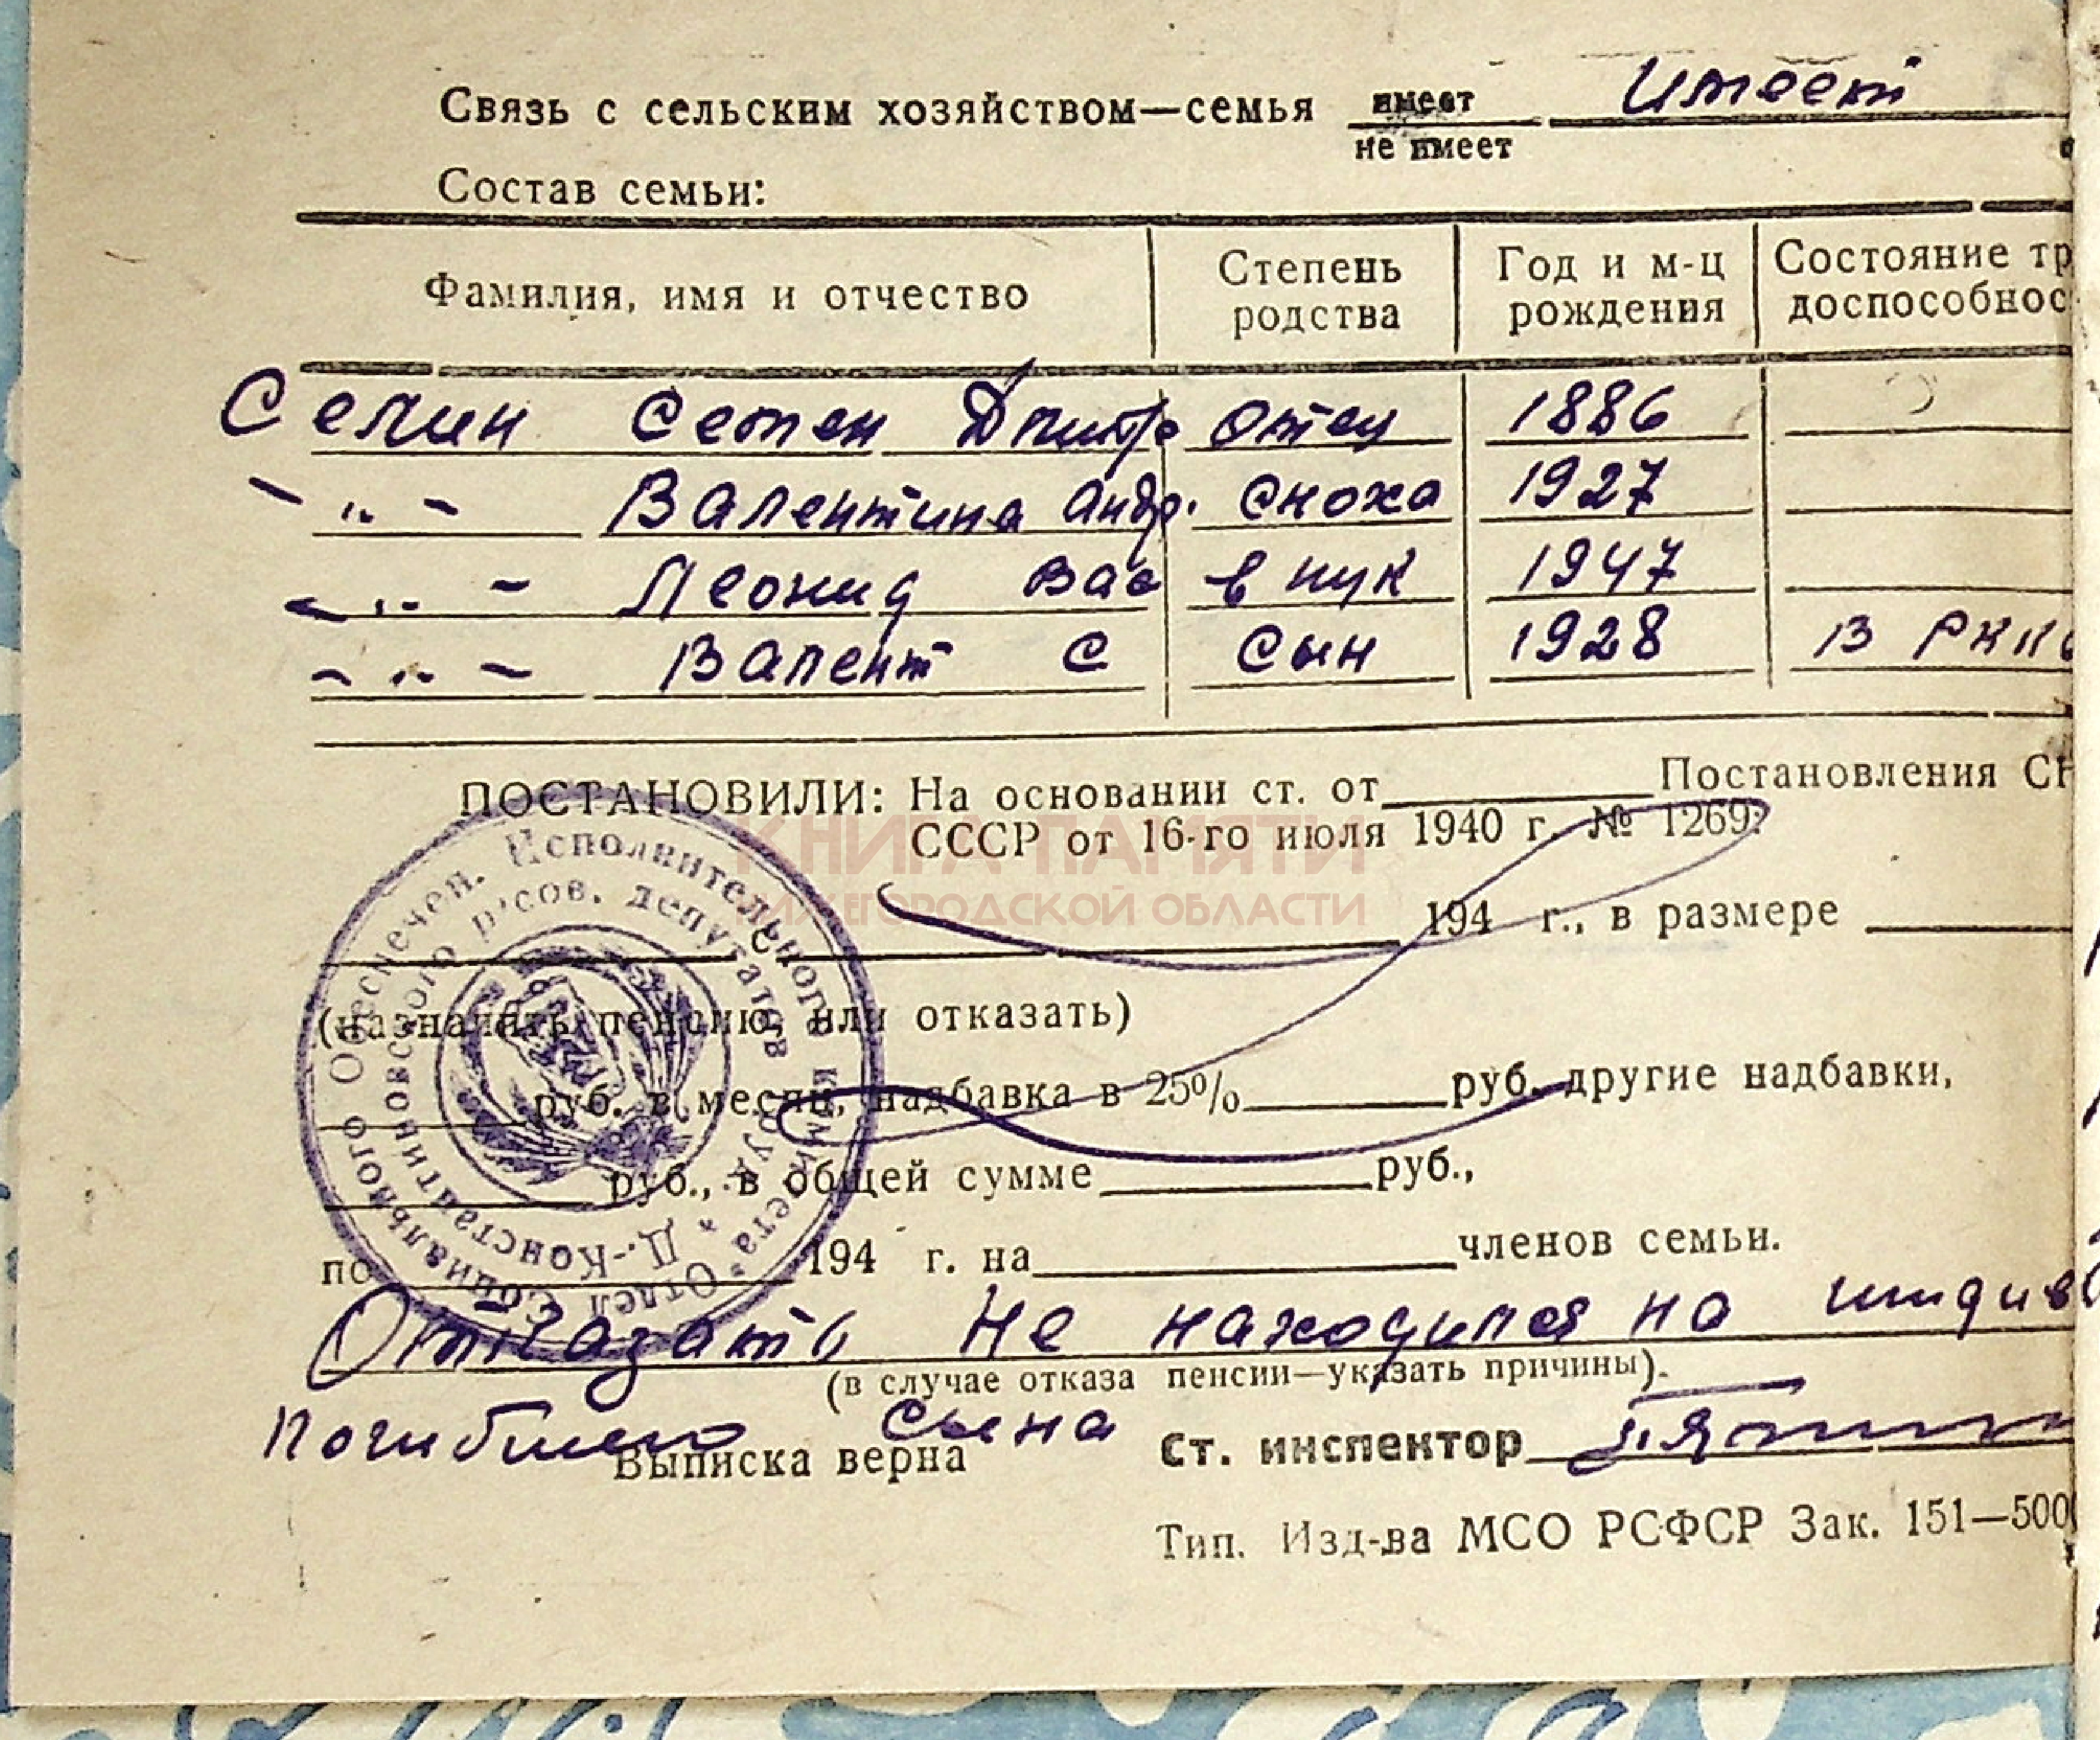 Связь с сельским хозяйством—семья имеет имеет
не имеет
Состав семьи:
Фамилия, имя и отчество Степень родства Год и м-ц рождения Состояние тр доспособнос
Селин Семен Дмитр отец 1886
-"- Валентина Андр. сноха 1927
-"- Леонид Вас внук 1947
-"- Валент С сын 1928 В РКК
ПОСТАНОВИЛИ: На основании ст. от Постановления СН
СССР от 16-го июля 1940 г. № 1269:
КНИГА ПАМЯТИ
НИЖЕГОРОДСКОЙ ОБЛАСТИ
194 г., в размере
(назначить пенсию, или отказать)
руб. в месяц, надбавка в 25% руб. другие надбавки,
руб., в общей сумме руб.,
по 194 г. на членов семьи.
Отказать Не находился на иждив
(в случае отказа пенсии—указать причины).
погибшего сына
Выписка верна Ст. инспектор
Тип. Изд-ва МСО РСФСР Зак. 151—500
Отдел Социального Обеспечен. Исполнительного комитета
Д.-Константиновского р'сов. депутатов труд.